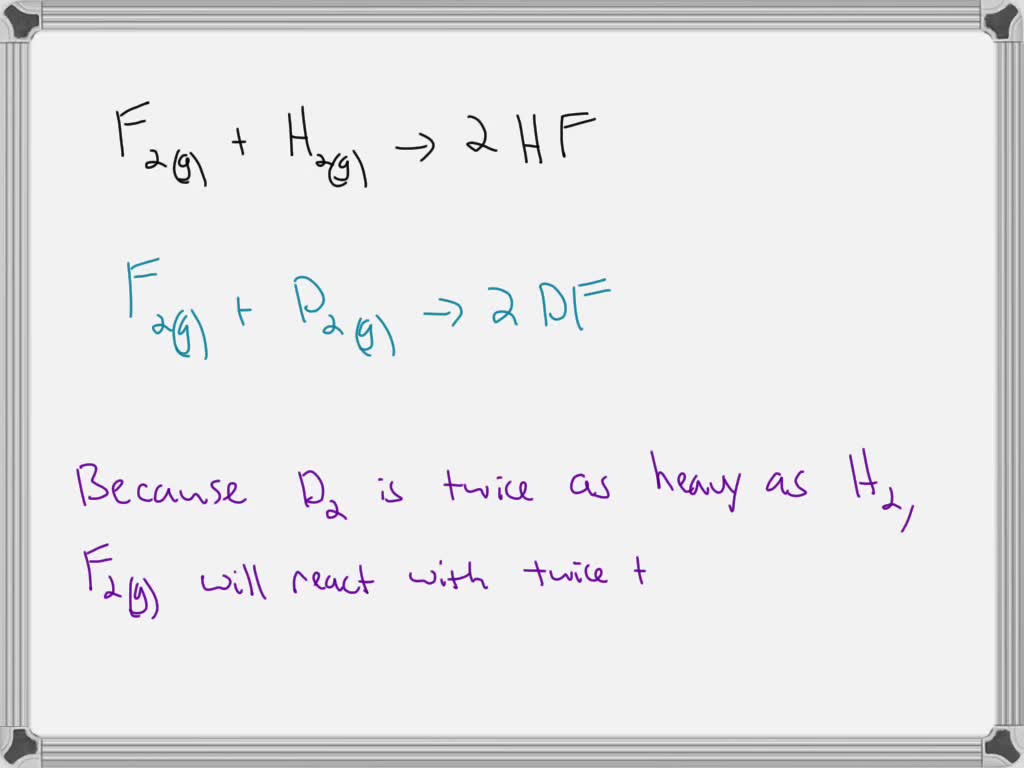 F₂(g) + H₂(g) → 2 HF
F₂(g) + D₂(g) → 2 DF
Because D₂ is twice as heavy as H₂,
F₂(g) will react with twice t